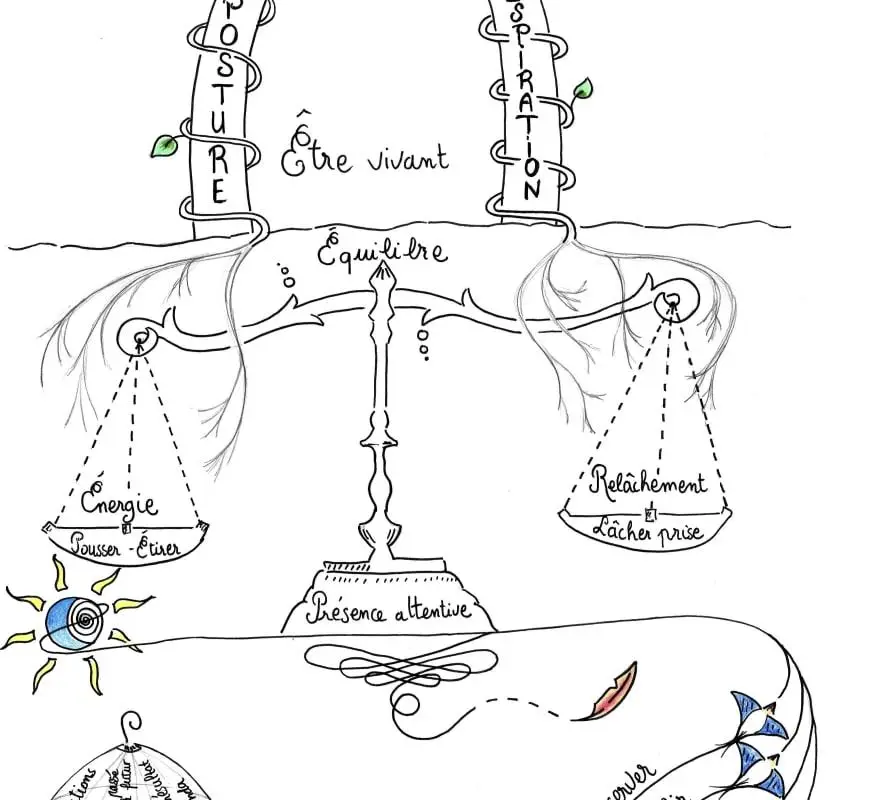 POSTURE
SPIRATION
Être vivant
Équilibre
Énergie
Pousser - Étirer
Relâchement
Lâcher prise
Présence attentive
passé
futur